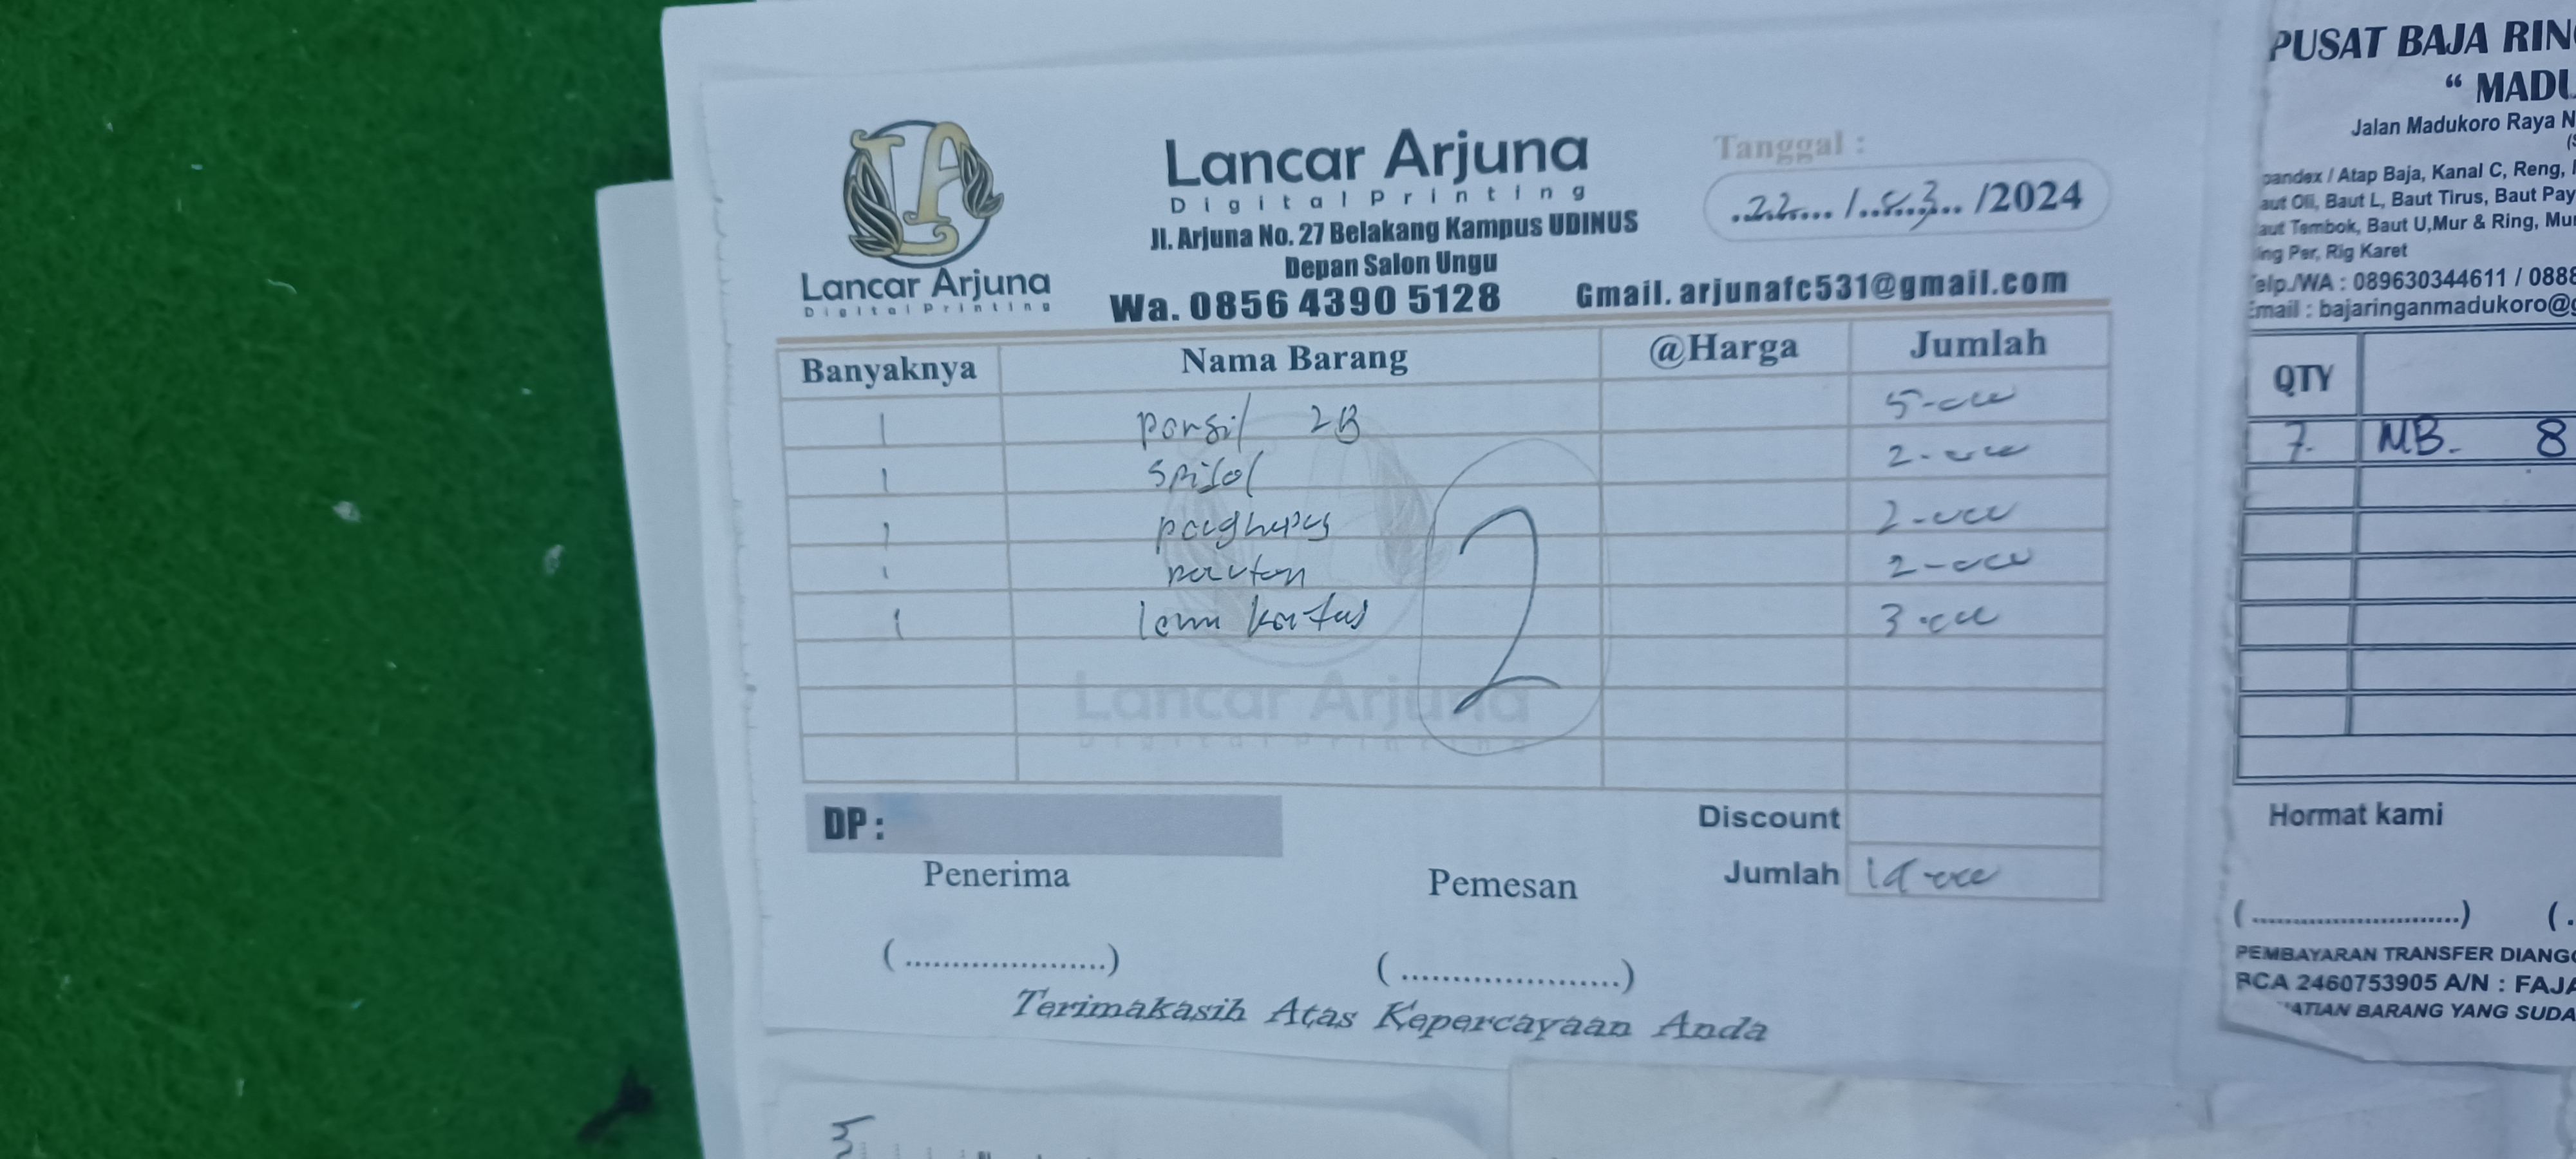 LA
Lancar Arjuna
Digital Printing
Lancar Arjuna
Digital Printing
Jl. Arjuna No. 27 Belakang Kampus UDINUS
Depan Salon Ungu
Wa. 0856 4390 5128
Gmail. arjunafc531@gmail.com
Tanggal :
22 / 03 /2024
Banyaknya Nama Barang @Harga Jumlah
1 pensil 2B 5-000
1 spidol 2-000
1 penghapus 2-000
1 rautan 2-000
1 lem kertas 3-000
2
Lancar Arjuna
Digital Printing
DP :
Discount
Jumlah 14-000
Penerima Pemesan
(......................) (........................)
Terimakasih Atas Kepercayaan Anda
PUSAT BAJA RIN
“ MADU
Jalan Madukoro Raya N
pandex / Atap Baja, Kanal C, Reng,
aut Oli, Baut L, Baut Tirus, Baut Pay
aut Tembok, Baut U,Mur & Ring, Mu
ing Per, Rig Karet
elp./WA : 089630344611 / 0888
Email : bajaringanmadukoro@g
QTY
7 MB. 8
Hormat kami
(..........................) (.
PEMBAYARAN TRANSFER DIANGG
BCA 2460753905 A/N : FAJA
ATIAN BARANG YANG SUDA
5